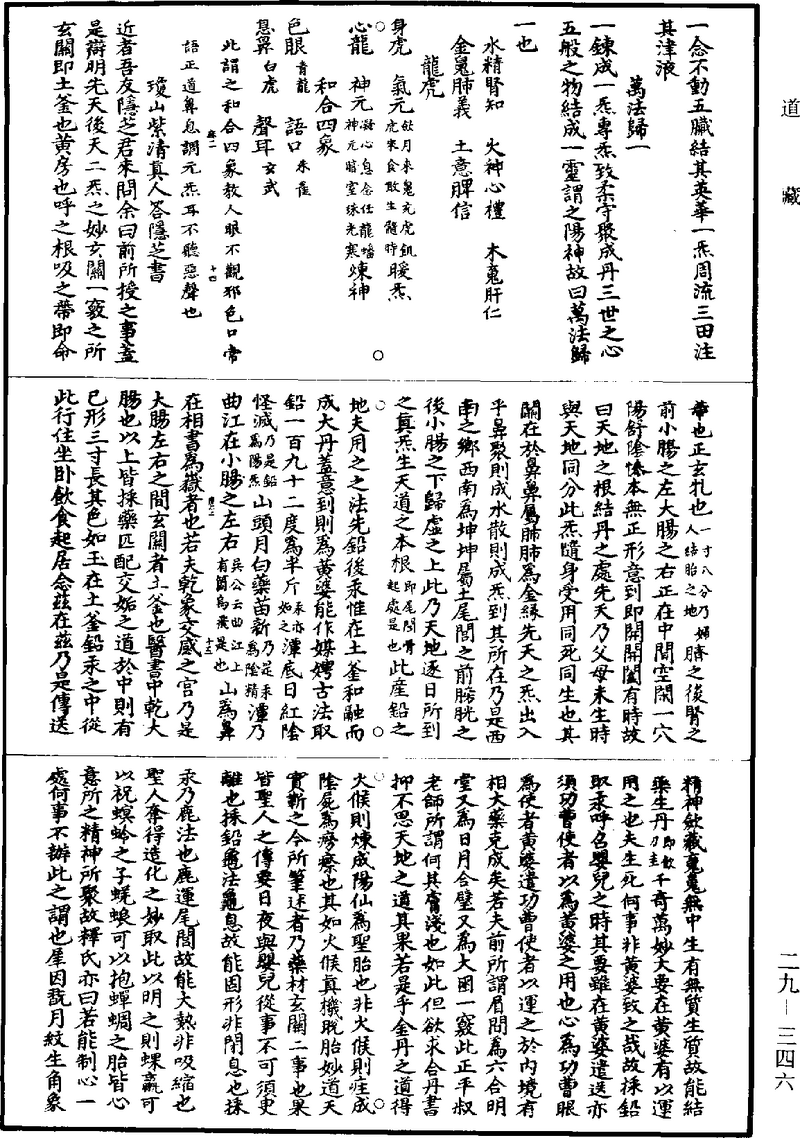 道藏
二九—三四六
一念不動五臟結其英華一炁周流三田注
其津液
萬法歸一
一鍊成一炁專炁致柔守聚成丹三世之心
五般之物結成一靈謂之陽神故曰萬法歸
一也
水精腎知 火神心禮 木䰟肝仁
金䰟肺義 土意脾信
龍虎
身虎 氣元 暖炁
心龍 神元 煉神
和合四象
色眼青龍 語口朱雀
息鼻白虎 聲耳玄武
此謂之和合四象教人眼不觀邪色口常
語正道鼻息調元炁耳不聽惡聲也
瓊山紫清真人答隱芝書
近者吾友隱芝君來問余曰前所授之事蓋
是辯明先天後天二炁之妙玄關一竅之所
玄關即土釜也黃房也呼之根吸之蔕即命
蔕也正玄牝也一寸八分乃婦人結胎之地臍之後腎之
前小腸之左大腸之右正在中間空閑一穴
陽舒陰慘本無正形意到即開開闔有時故
曰天地之根結丹之處先天乃父母未生時
與天地同分此炁隨身受用同死同生也其
關在於鼻鼻屬肺肺為金緣先天之炁出入
乎鼻聚則成水散則成炁到其所在乃是西
南之鄉西南為坤坤屬土尾閭之前膀胱之
後小腸之下歸虛之上此乃天地逐日所到
之真炁生天道之本根即尾閭骨起處是也此產鉛之
地夫用之之法先鉛後汞惟在土釜和融而
成大丹蓋意到則為黃婆能作媒娉古法取
鉛一百九十二度為半斤汞亦如之潭底日紅陰
怪滅乃是鉛為陽炁山頭月白藥苗新乃是汞為陰精潭乃
曲江在小腸之左右吳公云曲江上有箇烏飛是也山為鼻
在相書為嶽者也若夫乾象交感之宮乃是
大腸左右之間玄關者土釜也醫書中乾大
腸也以上皆採藥匹配交姤之道於中則有
已形三寸長其色如玉在土釜鉛汞之中從
此行住坐臥飲食起居念茲在茲乃是傳送
精神斂藏䰟䰟無中生有無質生質故能結
藥生丹即飲刀圭千奇萬妙大要在黃婆有以運
用之也夫生死何事非黃婆致之哉故採鉛
取汞呼召嬰兒之時其要雖在黃婆遣送亦
須功曹使者以為黃婆之用也心為功曹眼
為使者黃婆遣功曹使者以運之於內境有
相大藥克成矣若夫前所謂眉間為六合明
堂又為日月合璧又為大困一竅此正平叔
老師所謂何其膚淺也如此但欲求合丹書
抑不思天地之道其果若是乎金丹之道得
火候則煉成陽仙為聖胎也非火候則疰成
陰屍為癆瘵也其如火候真機脫胎妙道天
實靳之今所筆述者乃藥材玄關二事也果
皆聖人之傳要日夜與嬰兒從事不可須臾
離也採鉛龜法龜息故能固形非閉息也採
汞乃鹿法也鹿運尾閭故能大熱非吸縮也
聖人奪得造化之妙取此以明之則蜾蠃可
以祝螟蛉之子蜣蜋可以抱蟬蜩之胎皆心
意所之精神所聚故釋氏亦曰若能制心一
處何事不辦此之謂也犀因翫月紋生角象